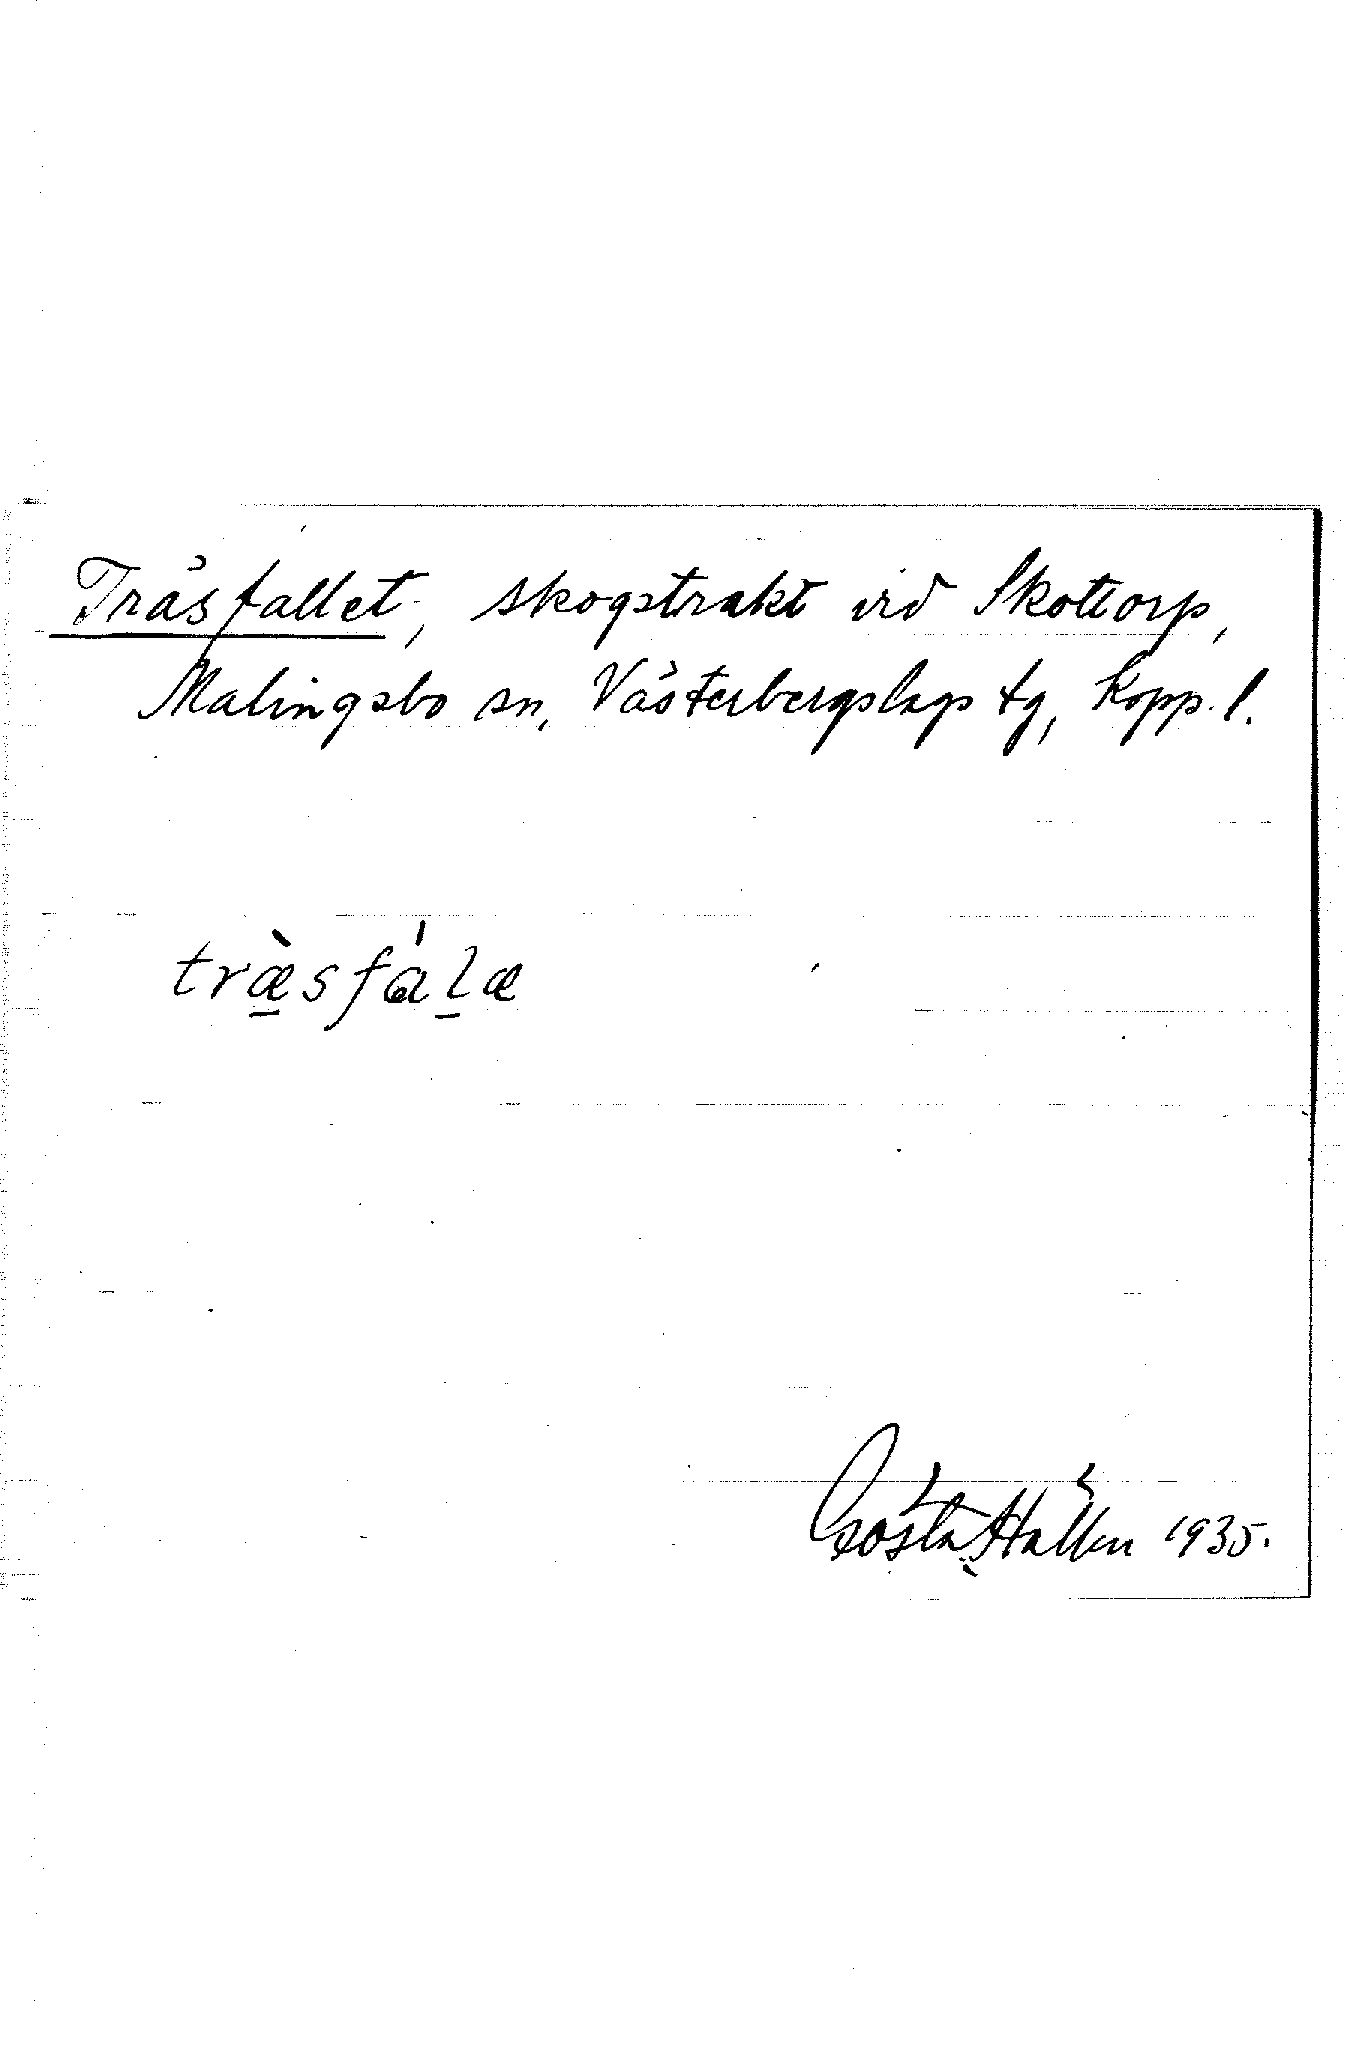 Träsfallet, skogstrakt vid Skottorp,
Malingsbo sn, Västerbergslags tg, Kopp. l.
træ̠̀sfál̠æ
Gösta Hallén 1935.